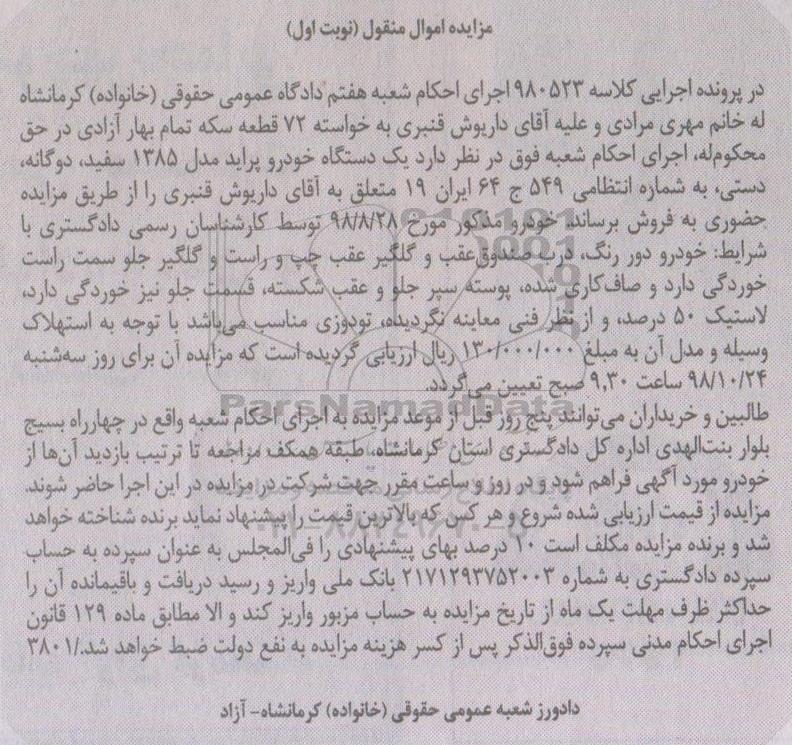 مزایده اموال منقول (نوبت اول)
در پرونده اجرایی کلاسه ۹۸۰۵۲۳ اجرای احکام شعبه هفتم دادگاه عمومی حقوقی (خانواده) کرمانشاه
له خانم مهری مرادی و علیه آقای داریوش قنبری به خواسته ۷۲ قطعه سکه تمام بهار آزادی در حق
محکوم‌له، اجرای احکام شعبه فوق در نظر دارد یک دستگاه خودرو پراید مدل ۱۳۸۵ سفید، دوگانه،
دستی، به شماره انتظامی ۵۴۹ ج ۶۴ ایران ۱۹ متعلق به آقای داریوش قنبری را از طریق مزایده
حضوری به فروش برساند. خودرو مذکور مورخ ۹۸/۸/۲۸ توسط کارشناسان رسمی دادگستری با
شرایط: خودرو دور رنگ، درب صندوق‌عقب و گلگیر عقب چپ و راست و گلگیر جلو سمت راست
خوردگی دارد و صاف‌کاری شده، پوسته سپر جلو و عقب شکسته، قسمت جلو نیز خوردگی دارد،
لاستیک ۵۰ درصد، و از نظر فنی معاینه نگردیده، تودوزی مناسب می‌باشد با توجه به استهلاک
وسیله و مدل آن به مبلغ ۱۳۰/۰۰۰/۰۰۰ ریال ارزیابی گردیده است که مزایده آن برای روز سه‌شنبه
۹۸/۱۰/۲۴ ساعت ۹,۳۰ صبح تعیین می‌گردد.
ParsNamadData
طالبین و خریداران می‌توانند پنج روز قبل از موعد مزایده به اجرای احکام شعبه واقع در چهارراه بسیج
بلوار بنت‌الهدی اداره کل دادگستری استان کرمانشاه، طبقه همکف مراجعه تا ترتیب بازدید آن‌ها از
خودرو مورد آگهی فراهم شود و در روز و ساعت مقرر جهت شرکت در مزایده در این اجرا حاضر شوند.
مزایده از قیمت ارزیابی شده شروع و هر کس که بالاترین قیمت را پیشنهاد نماید برنده شناخته خواهد
شد و برنده مزایده مکلف است ۱۰ درصد بهای پیشنهادی را فی‌المجلس به عنوان سپرده به حساب
سپرده دادگستری به شماره ۲۱۷۱۲۹۳۷۵۲۰۰۳ بانک ملی واریز و رسید دریافت و باقیمانده آن را
حداکثر ظرف مهلت یک ماه از تاریخ مزایده به حساب مزبور واریز کند و الا مطابق ماده ۱۲۹ قانون
اجرای احکام مدنی سپرده فوق‌الذکر پس از کسر هزینه مزایده به نفع دولت ضبط خواهد شد./۳۸۰۱
دادورز شعبه عمومی حقوقی (خانواده) کرمانشاه- آزاد